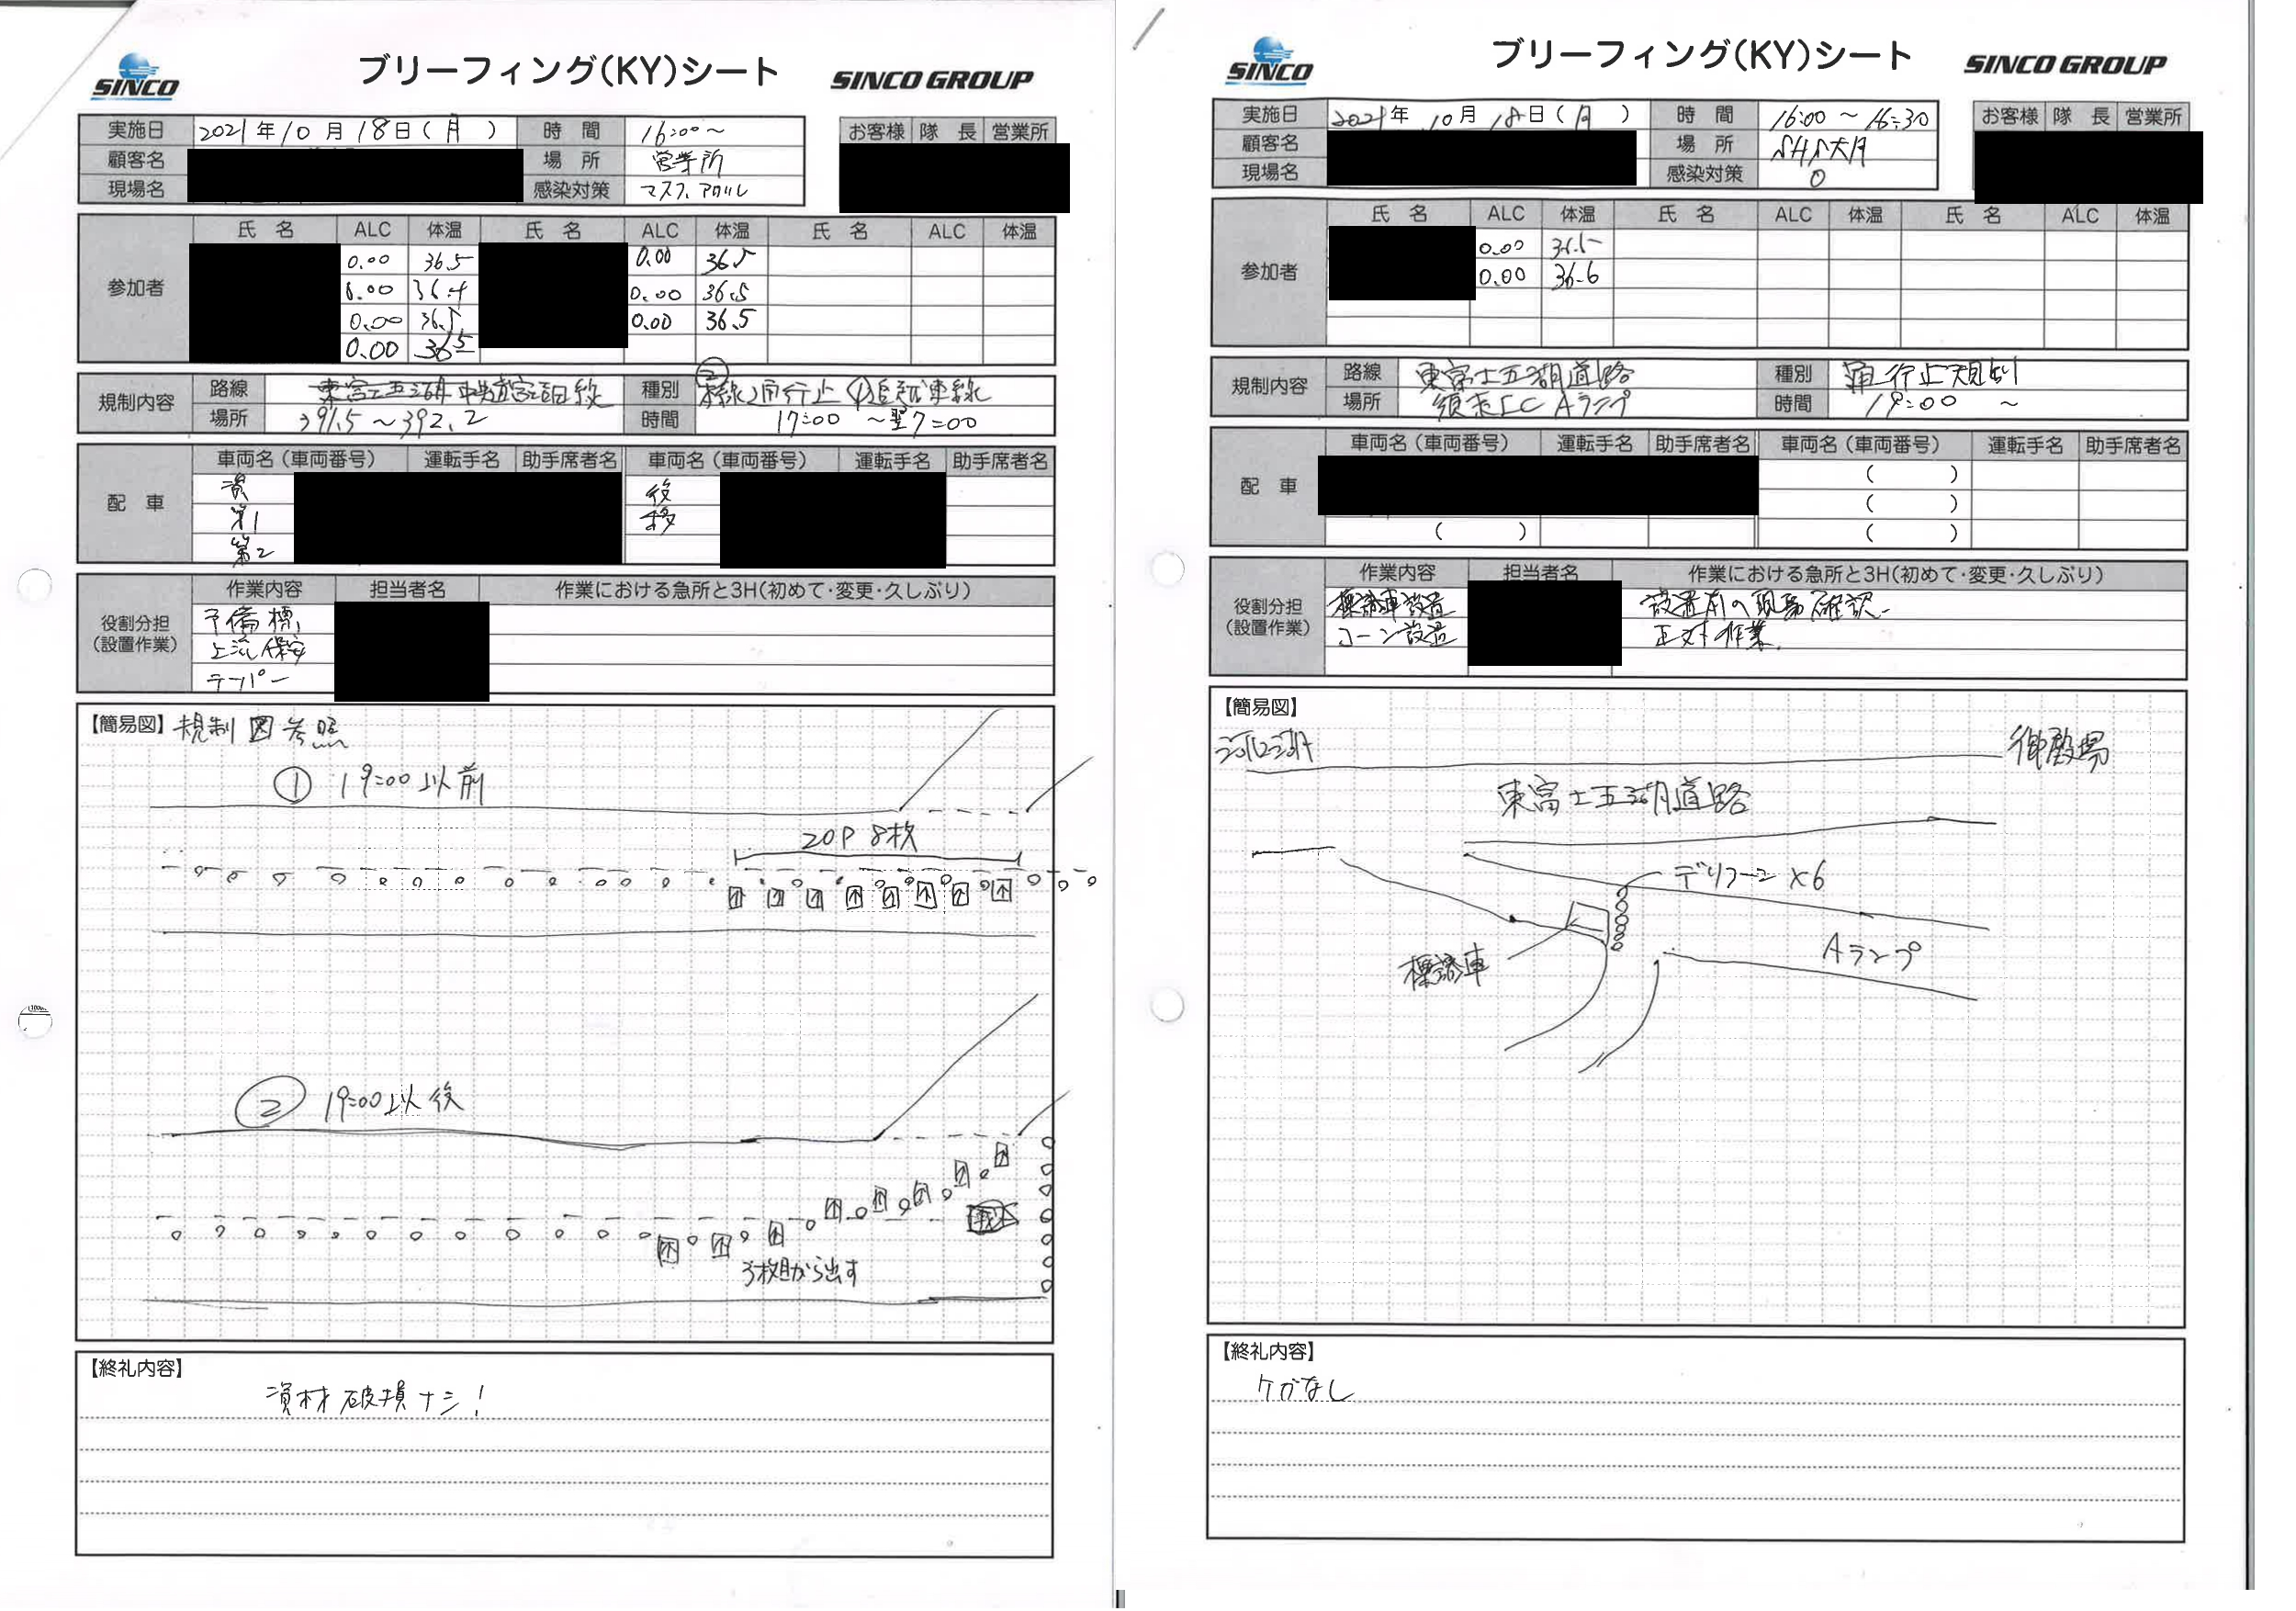 SINCO
ブリーフィング(KY)シート
SINCO GROUP
実施日 2021年10月18日(月) 時間 16:00～
顧客名 場所 営業所
現場名 感染対策 マスク、アルコール
お客様 隊長 営業所
参加者
氏名 ALC 体温 氏名 ALC 体温 氏名 ALC 体温
0.00 36.5 0.00 36.5
0.00 36.4 0.00 36.5
0.00 36.5 0.00 36.5
0.00 36.5
規制内容
路線 東富士五湖 中央道富士吉田線 種別 ②本線通行止 ①追越車線
場所 391.5～392.2 時間 17:00～翌7:00
配車
車両名(車両番号) 運転手名 助手席者名 車両名(車両番号) 運転手名 助手席者名
資 後
第1 移
第2
役割分担
(設置作業)
作業内容 担当者名 作業における急所と3H(初めて・変更・久しぶり)
予備標
上流保安
テーパー
【簡易図】規制図参照
① 19:00以前
20P 8枚
② 19:00以後
3枚目から出す
【終礼内容】
資材破損ナシ!
SINCO
ブリーフィング(KY)シート
SINCO GROUP
実施日 2021年10月18日(月) 時間 16:00～16:30
顧客名 場所 SHS大月
現場名 感染対策 ○
お客様 隊長 営業所
参加者
氏名 ALC 体温 氏名 ALC 体温 氏名 ALC 体温
0.00 36.5
0.00 36.6
規制内容
路線 東富士五湖道路 種別 通行止規制
場所 須走IC Aランプ 時間 19:00～
配車
車両名(車両番号) 運転手名 助手席者名 車両名(車両番号) 運転手名 助手席者名
( )
( )
( ) ( )
役割分担
(設置作業)
作業内容 担当者名 作業における急所と3H(初めて・変更・久しぶり)
標識車設置 設置前の現場確認
コーン設置 正対作業
【簡易図】
河口湖 御殿場
東富士五湖道路
デリコーン×6
標識車
Aランプ
【終礼内容】
ケガなし